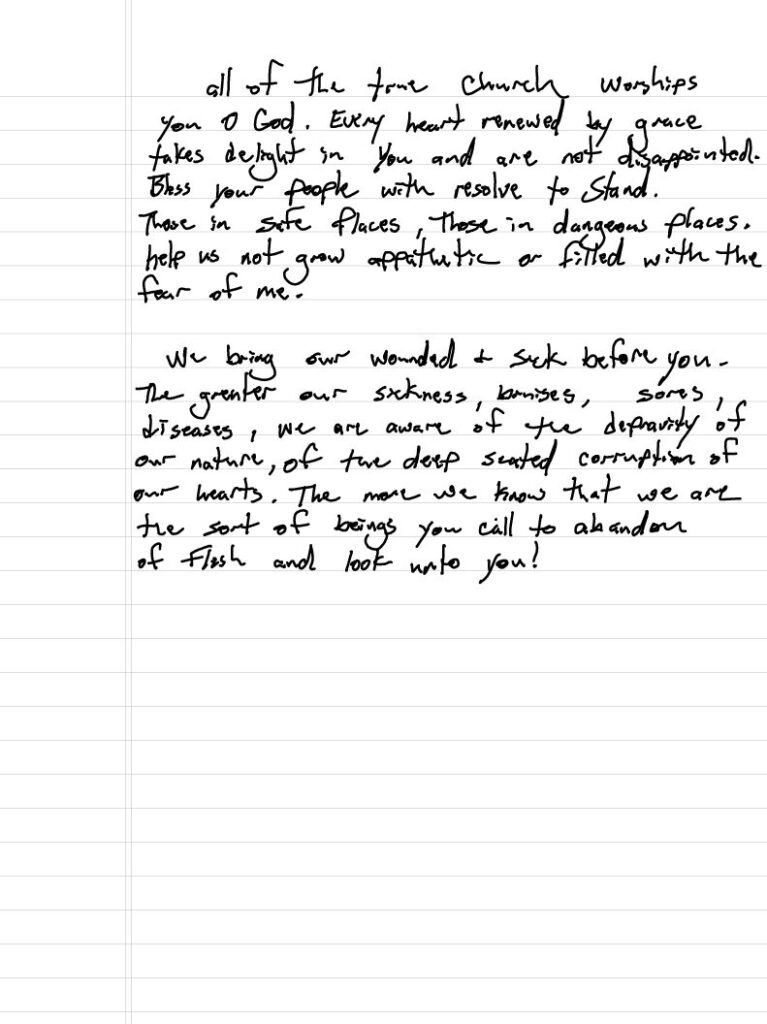 all of the true church worships
you O God. Every heart renewed by grace
takes delight in you and are not disappointed.
Bless your people with resolve to stand.
Those in safe places, those in dangeous places.
help us not grow appathetic or filled with the
fear of me.
We bring our wounded & sick before you.
The greater our sickness, bruises, sores,
diseases, we are aware of the depravity of
our nature, of the deep seated corruption of
our hearts. The more we know that we are
the sort of beings you call to abandon
of flesh and look unto you!